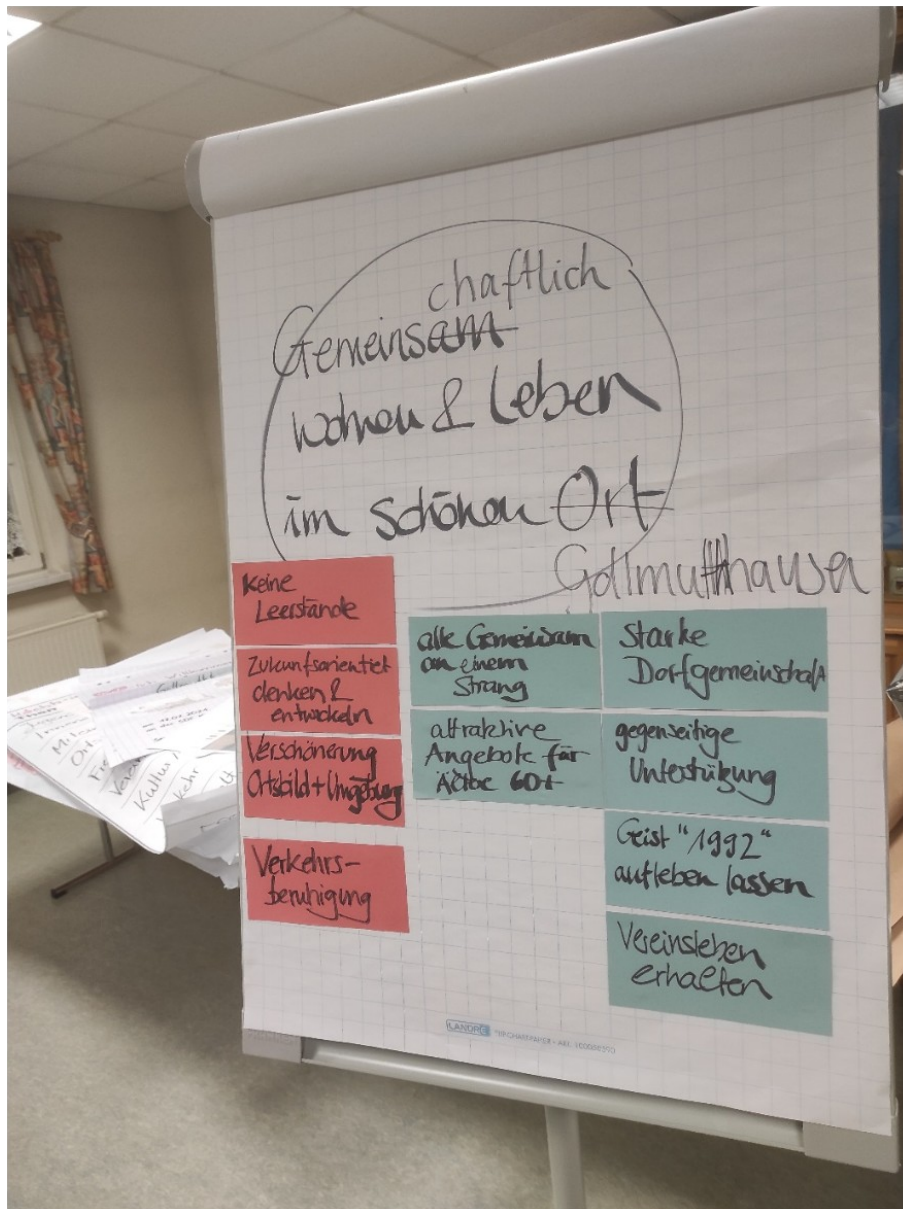 chaftlich
Gemeinsam
wohnen & Leben
im schönen Ort
Gollmuthhausen
Keine
Leerstände
Zukunfsorientiert
denken &
entwickeln
Verschönerung
Ortsbild + Umgebung
Verkehrs-
beruhigung
alle Gemeinsam
an einem
Strang
attraktive
Angebote für
Aktive 60+
Starke
Dorfgemeinschaft
gegenseitige
Unterstützung
Geist "1992"
aufleben lassen
Vereinsleben
erhalten
LANDRÉ
Ort
Kultur